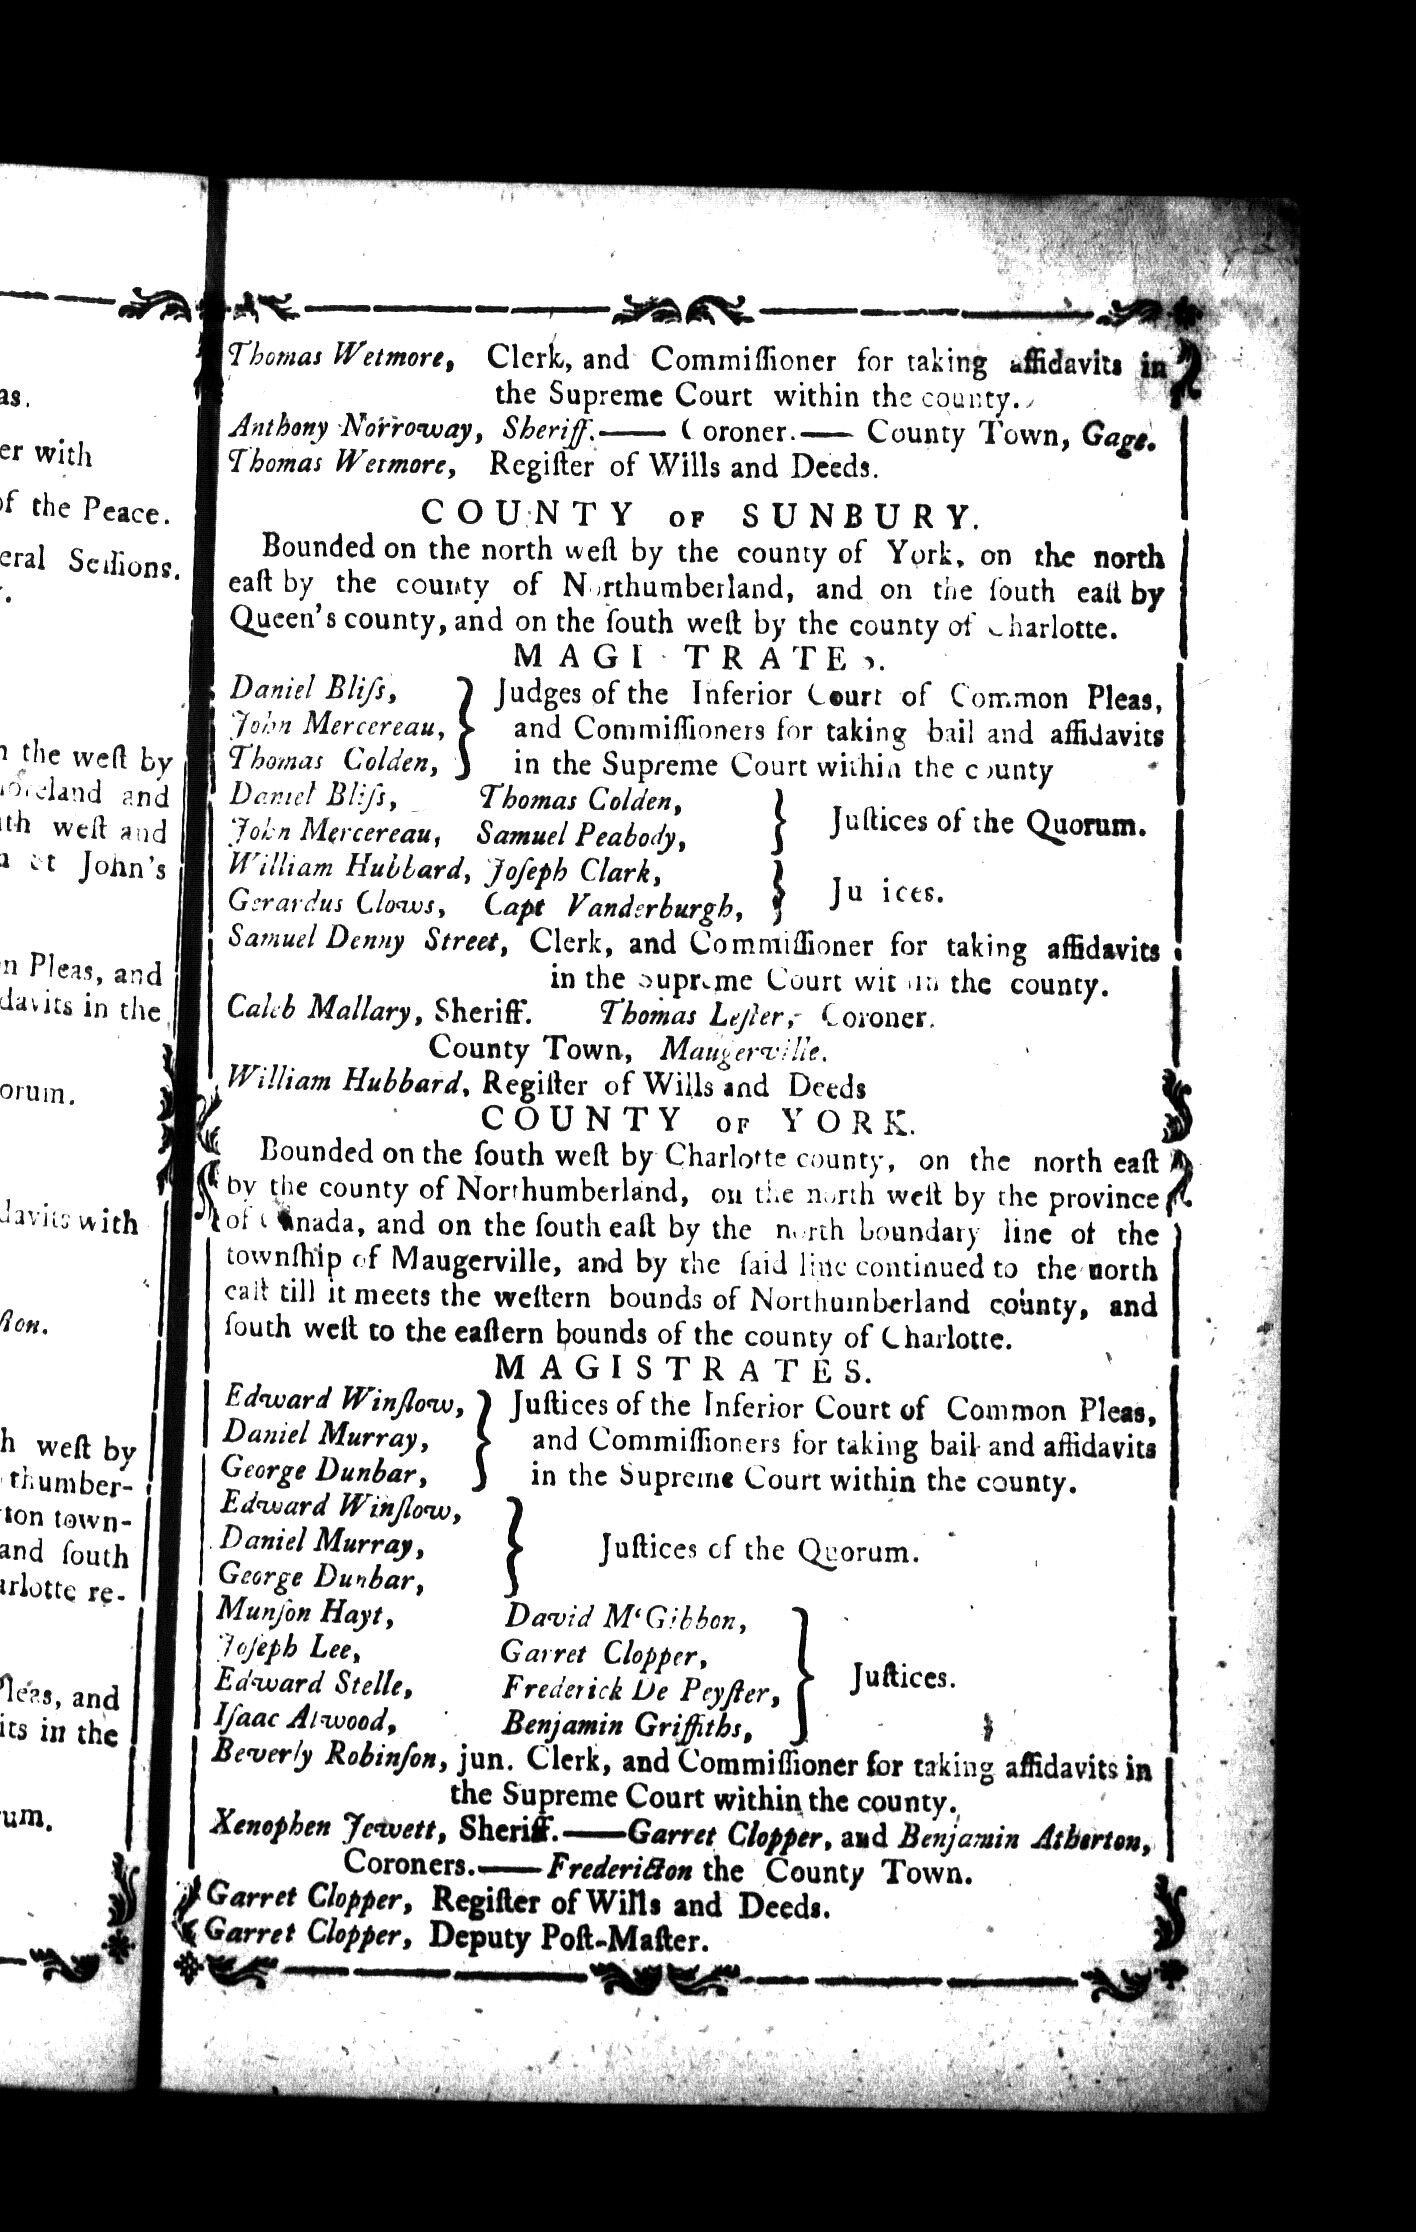 as.
er with
of the Peace.
eral Sessions.
n the weſt by
and
weſt and
John's
n Pleas, and
davits in the
orum.
davits with
h weſt by
thumber-
ton town-
and ſouth
arlotte re-
Pleas, and
its in the
rum.
Thomas Wetmore, Clerk, and Commiſſioner for taking affidavits in
the Supreme Court within the county.
Anthony Norroway, Sheriff.—— Coroner.—— County Town, Gage.
Thomas Wetmore, Regiſter of Wills and Deeds.
COUNTY OF SUNBURY.
Bounded on the north weſt by the county of York, on the north
eaſt by the county of Northumberland, and on the ſouth eaſt by
Queen's county, and on the ſouth weſt by the county of Charlotte.
MAGISTRATES.
Daniel Bliſs, } Judges of the Inferior Court of Common Pleas,
John Mercereau, } and Commiſſioners for taking bail and affidavits
Thomas Colden, } in the Supreme Court within the county
Daniel Bliſs, Thomas Colden, }
John Mercereau, Samuel Peabody, } Juſtices of the Quorum.
William Hubbard, Joſeph Clark, }
Gerardus Clows, Capt Vanderburgh, } Juſtices.
Samuel Denny Street, Clerk, and Commiſſioner for taking affidavits
in the Supreme Court within the county.
Caleb Mallary, Sheriff. Thomas Leſter, Coroner.
County Town, Maugerville.
William Hubbard, Regiſter of Wills and Deeds
COUNTY OF YORK.
Bounded on the ſouth weſt by Charlotte county, on the north eaſt
by the county of Northumberland, on the north weſt by the province
of Canada, and on the ſouth eaſt by the north boundary line of the
townſhip of Maugerville, and by the ſaid line continued to the north
eaſt till it meets the weſtern bounds of Northumberland county, and
ſouth weſt to the eaſtern bounds of the county of Charlotte.
MAGISTRATES.
Edward Winſlow, } Juſtices of the Inferior Court of Common Pleas,
Daniel Murray, } and Commiſſioners for taking bail and affidavits
George Dunbar, } in the Supreme Court within the county.
Edward Winſlow, }
Daniel Murray, } Juſtices of the Quorum.
George Dunbar, }
Munſon Hayt, David M‘Gibbon, }
Joſeph Lee, Garret Clopper, }
Edward Stelle, Frederick De Peyſter, } Juſtices.
Iſaac Atwood, Benjamin Griffiths, }
Beverly Robinſon, jun. Clerk, and Commiſſioner for taking affidavits in
the Supreme Court within the county.
Xenophen Jewett, Sheriff.——Garret Clopper, and Benjamin Atherton,
Coroners.——Fredericton the County Town.
Garret Clopper, Regiſter of Wills and Deeds.
Garret Clopper, Deputy Poſt-Maſter.